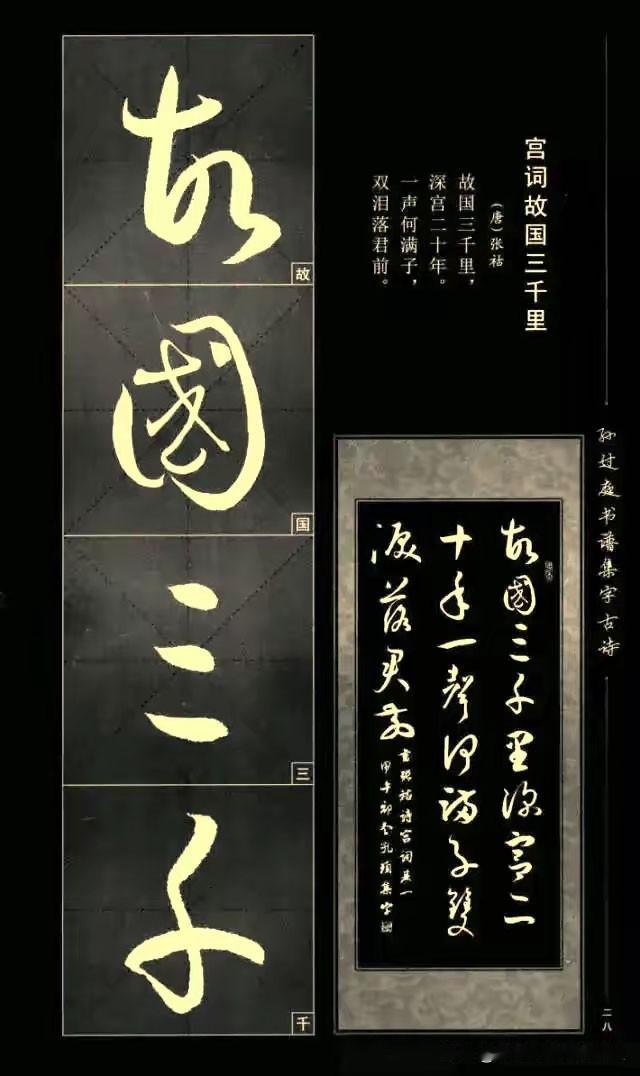 宫词故国三千里
（唐）张祜
故国三千里，
深宫二十年。
一声何满子，
双泪落君前。
孙过庭书谱集字古诗
故國三千
故
国
三
千
故國三千里深宫二
十年一聲何滿子雙
淚落君前
書張祜诗宫词其一
甲午初冬孔珂集字
二八